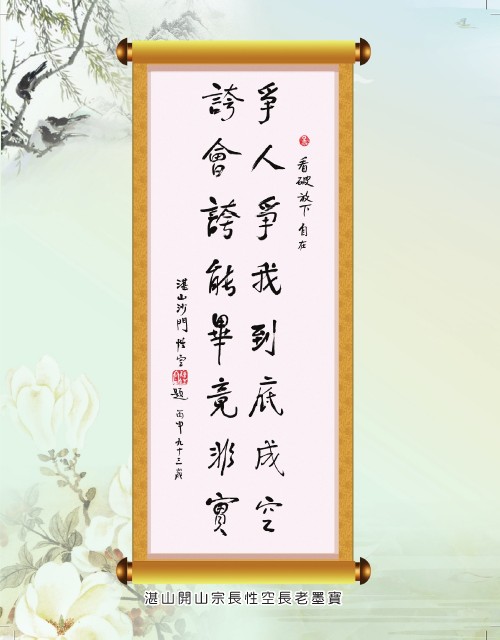 看破放下自在
爭人爭我到底成空
誇會誇能畢竟非實
湛山沙門性空題丙申九十三歲
湛山開山宗長性空長老墨寶